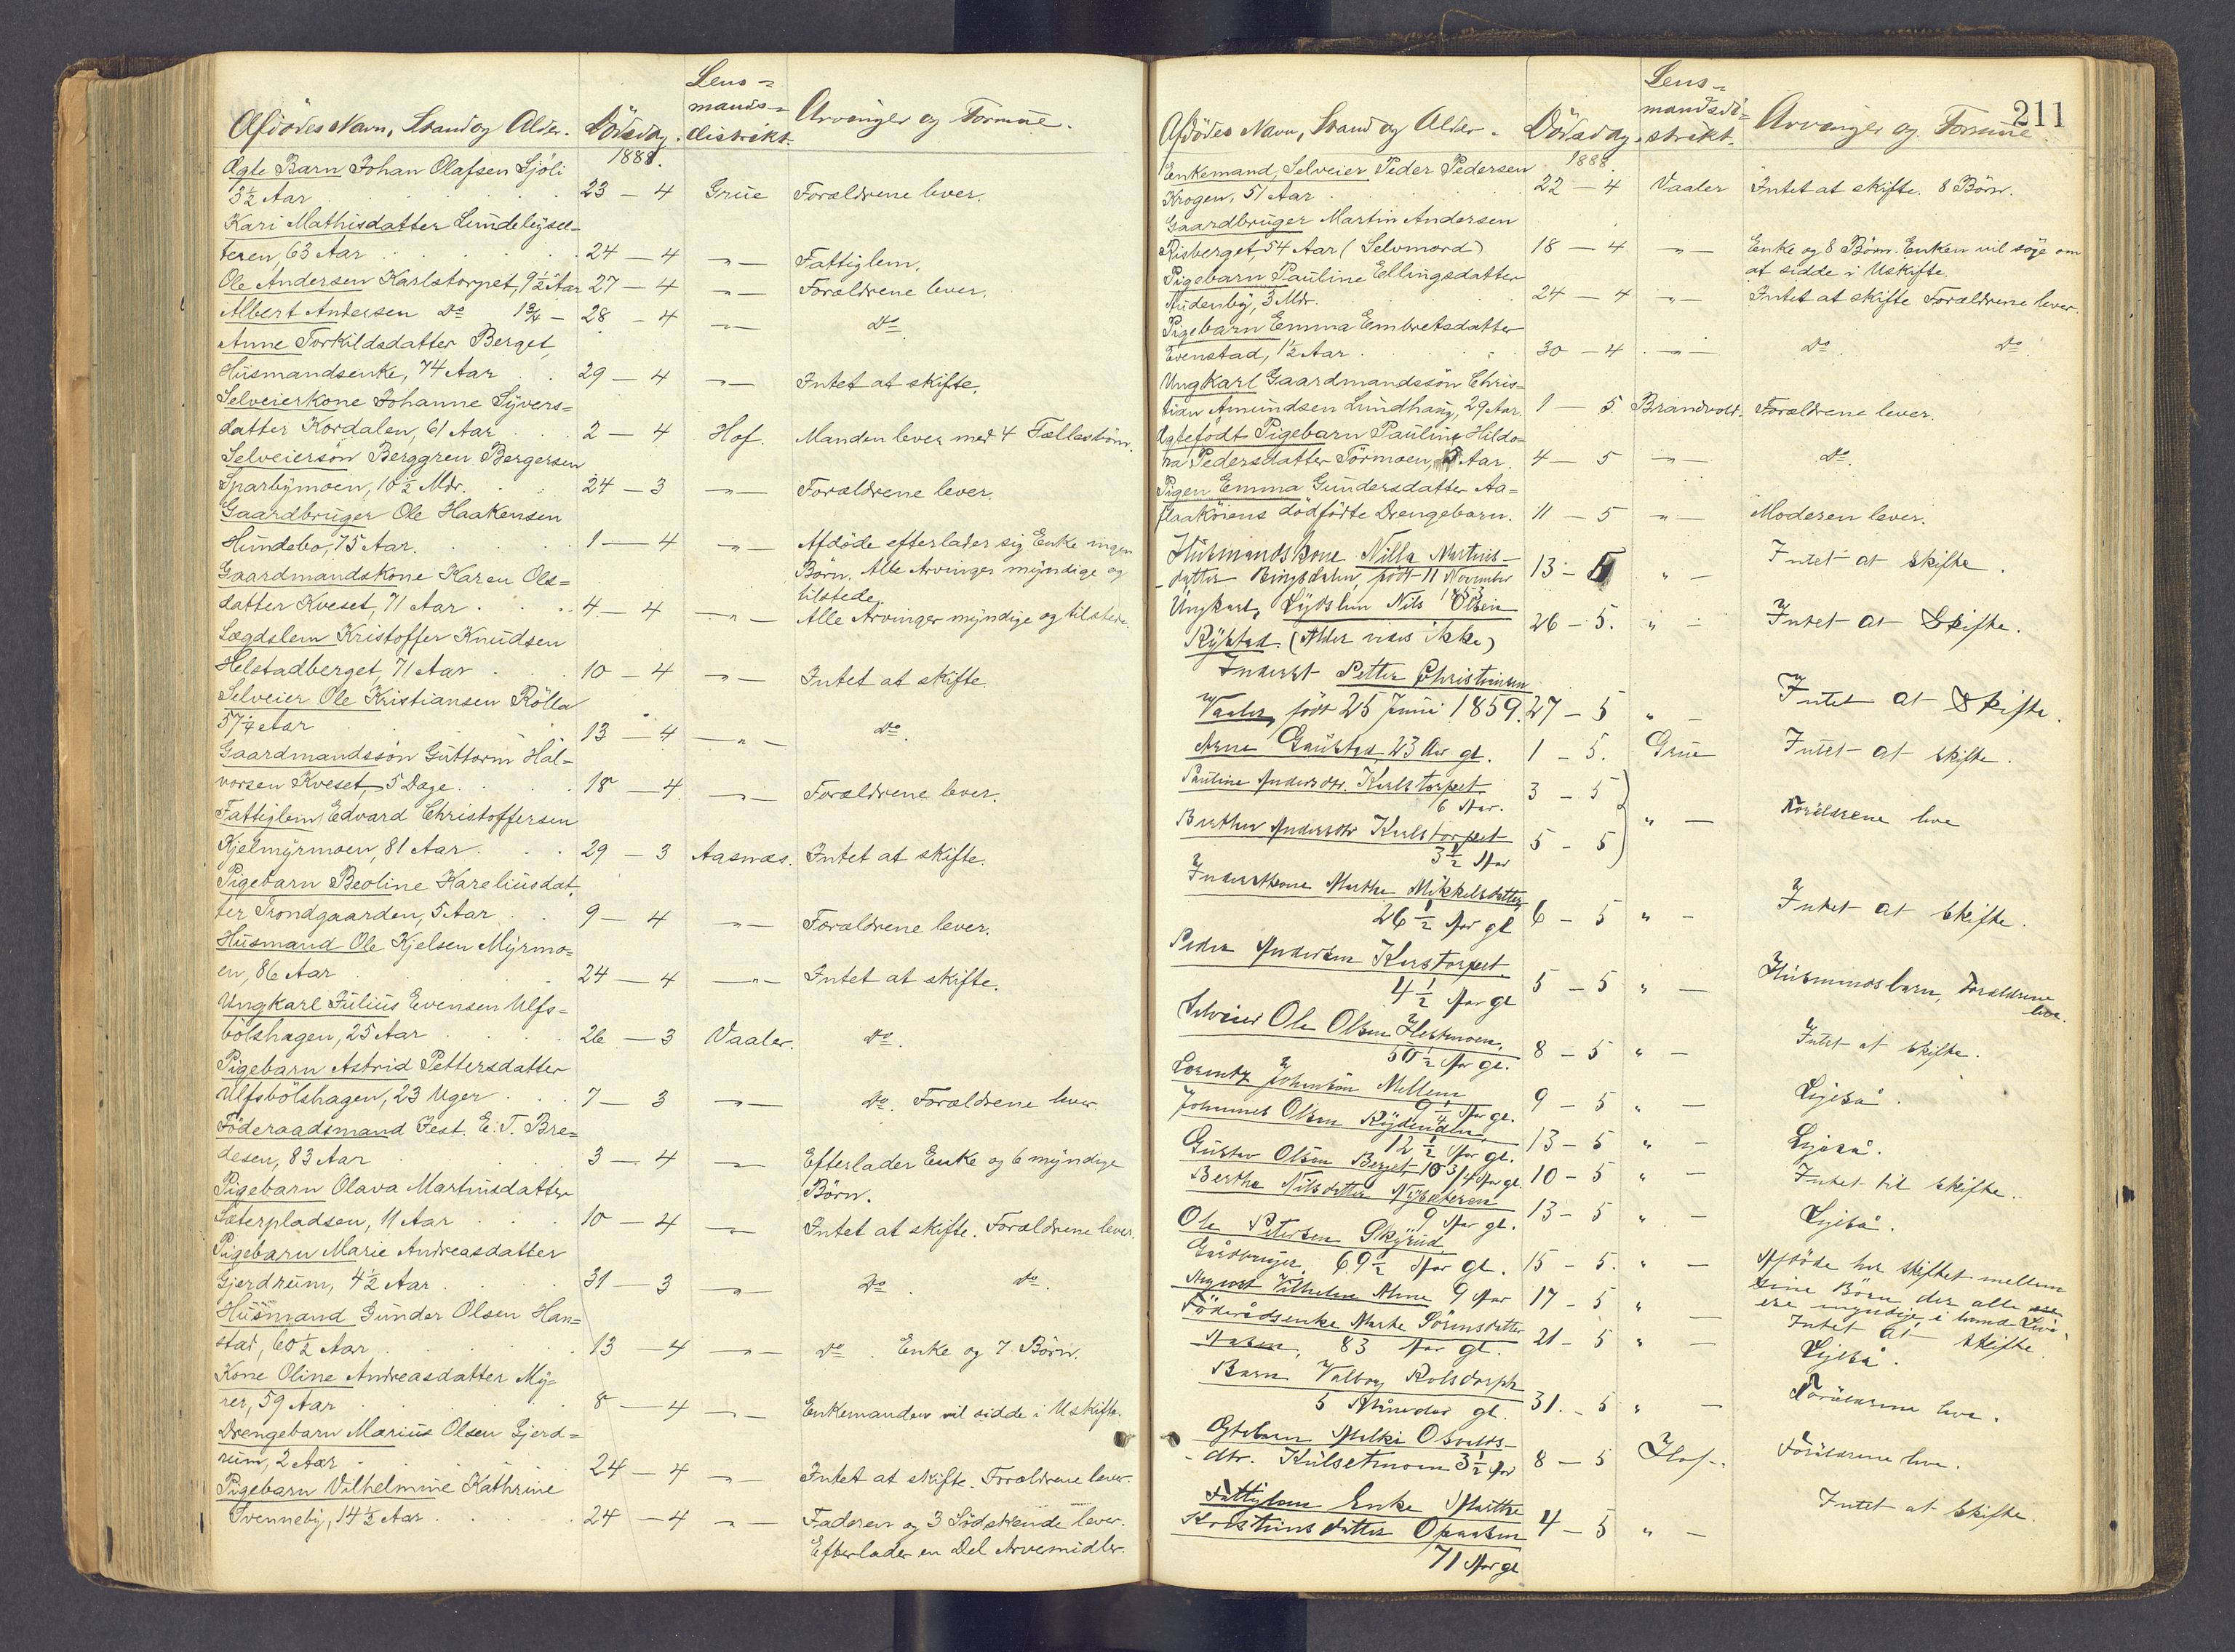 Afdödes Navn, Stand og Alder. Dödsdag. Lens=
mands=
distrikt. Arvinger og Formue.
1888.
Ægte Barn Johan Olafsen Sjöli
3½ Aar 23 — 4 Grue Forældrene lever.
Kari Mathisdatter Lundeby
teren, 63 Aar 24 — 4 —"— Fattiglem.
Ole Andersen Karlstorpet, 9½ Aar 27 — 4 —"— Forældrene lever.
Albert Andersen Do 1¾ — 28 — 4 —"— Do
Anne Torkildsdatter Berget,
Husmandsenke, 74 Aar 29 — 4 —"— Intet at skifte.
Selveierkone Johanne Syvers=
datter Kordalen, 61 Aar 2 — 4 Hof. Manden lever med 4 Fællesbörn.
Selveiersön Berggren Bergersen
Sparbymoen, 10½ Mdr. 24 — 3 —"— Forældrene lever.
Gaardbruger Ole Haakensen
Hundebo, 75 Aar. 1 — 4 —"— Afdöde efterlader sig Enke ingen
Börn. Alle Arvinger myndige og
tilstede.
Gaardmandskone Karen Ols=
datter Kveset, 71 Aar 4 — 4 —"— Alle Arvinger myndige og tilstede.
Lægdslem Kristoffer Knudsen
Helstadberget, 71 Aar 10 — 4 —"— Intet at skifte.
Selveier Ole Kristiansen Rölla
57¼ Aar 13 — 4 —"— Do.
Gaardmandssön Guttorm Hal=
vorsen Kveset, 5 Dage 18 — 4 —"— Forældrene lever.
Fattiglem Edvard Christoffersen
Kjelmyrmoen, 81 Aar 29 — 3 Aasnæs. Intet at skifte.
Pigebarn Beoline Kareliusdat
ter Trondgaarden, 5 Aar 9 — 4 —"— Forældrene lever.
Husmand Ole Kjelsen Myrmo=
en, 86 Aar 24 — 4 —"— Intet at skifte.
Ungkarl Julius Evensen Ulfs=
bölshagen, 25 Aar 26 — 3 Vaaler. Do.
Pigebarn Astrid Pettersdatter
Ulfsbölshagen, 23 Uger 7 — 3 —"— Do. Forældrene lever.
Föderaadsmand Fest. E. T. Bre=
desen, 83 Aar 3 — 4 —"— Efterlader Enke og 6 myndige
Börn.
Pigebarn Olava Martinusdatter
Sæterpladsen, 11 Aar 10 — 4 —"— Intet at skifte. Forældrene lever.
Pigebarn Marie Andreasdatter
Gjerdrum, 4½ Aar 31 — 3 —"— Do. Do.
Husmand Gunder Olsen Han=
stad, 60½ Aar 13 — 4 —"— Do. Enke og 7 Börn.
Kone Oline Andreasdatter My=
rer, 59 Aar 8 — 4 —"— Enkemanden vil sidde i Uskifte.
Drengebarn Marius Olsen Gjerd=
rum, 2 Aar 24 — 4 —"— Intet at skifte. Forældrene lever.
Pigebarn Vilhelmine Kathrine
Svenneby, 14½ Aar 24 — 4 —"— Faderen og 3 Södskende lever.
Efterlader en Del Arvemidler.
211
Afdödes Navn, Stand og Alder. Dödsdag. Lens=
mandsdi=
strikt. Arvinger og Formue.
1888.
Enkemand, Selveier Peder Pedersen
Krogen, 51 Aar 22 — 4 Vaaler Intet at skifte. 8 Börn.
Gaardbruger Martin Andersen
Risberget, 54 Aar (Selvmord) 18 — 4 —"— Enke og 8 Börn. Enken vil söge om
at sidde i Uskifte.
Pigebarn Pauline Ellingsdatter
Audenby, 3 Mdr. 24 — 4 —"— Intet at skifte Forældrene lever.
Pigebarn Emma Embretsdatter
Evenstad, 1½ Aar 30 — 4 —"— Do. Do.
Ungkarl Gaardmandssön Chris=
tian Amundsen Lundhaug, 29 Aar. 1 — 5 Brandvold. Forældrene lever.
Ægtefödt Pigebarn Pauline Hildo=
ra Pedersdatter Törmoen, Aar. 4 — 5 —"— Do.
Pigen Emma Gundersdatter Aa=
slaakoiens dödfödte Drengebarn. 11 — 5 —"— Moderen lever.
Husmandskone Nilla Martins-
datter Bingsdalen, födt 11 November
1853 13 — 5 " — Intet at skifte.
Ungkarl, Lydslem Nils Olsen
Rykstad. (Alder vides ikke) 26 — 5. " — Intet at Skifte.
Inderst Petter Christiansen
Vaaler, födt 25 Juni 1859. 27 — 5 " — Intet at Skifte.
Arne Gaustad, 23 Aar gl. 1 — 5. Grue Intet at skifte.
Pauline Andersdtr. Karlstorpet
6 Aar. 3 — 5
Berthe Andersdtr Karlstorpet
3½ Aar 5 — 5 " — Forældrene leve
Inderstkone Marthe Mikkelsdatter
26½ Aar gl 6 — 5 " — Intet at skifte.
Peder Andersen Karstorpet
4½ Aar gl 5 — 5 " — Husmandsbarn, Forældrene
leve.
Selveier Ole Olsen Hestmoen,
50½ Aar gl. 8 — 5 " — Intet at skifte.
Lorentz Johansen Mellem
9½ Aar gl. 9 — 5 " — Ligeså.
Johannes Olsen Röjdenden,
12½ Aar gl. 13 — 5 " — Ligeså.
Gustav Olsen Berget 10 3/4 Aar gl. 10 — 5 " — Intet til skifte.
Berthe Nilsdatter Nysæteren
9 Aar gl. 13 — 5 " — Ligeså.
Ole Petersen Skyrud
Gårdbruger, 69½ Aar gl. 15 — 5. " — Afdöde har skiftet mellem
sine Börn der alle
ere myndige, i levende Live.
August Vilhelm Alme 9 Aar 17 — 5 " — Intet at skifte.
Föderådsenke Marte Sörensdatter
83 Aar gl. 21 — 5 " — Ligeså.
Barn Valborg Rolsdorph
5 Måneder gl. 31. — 5 " — Forældrene leve.
Ægtebarn Milki Osvalds-
dtr. Kulsetmoen 3½ Aar 8 — 5 Hof. Forældrene leve.
Fattiglem Enke Marthe
Kristiansdatter Opaasen
71 Aar gl 4 — 5 " — Intet at skifte.